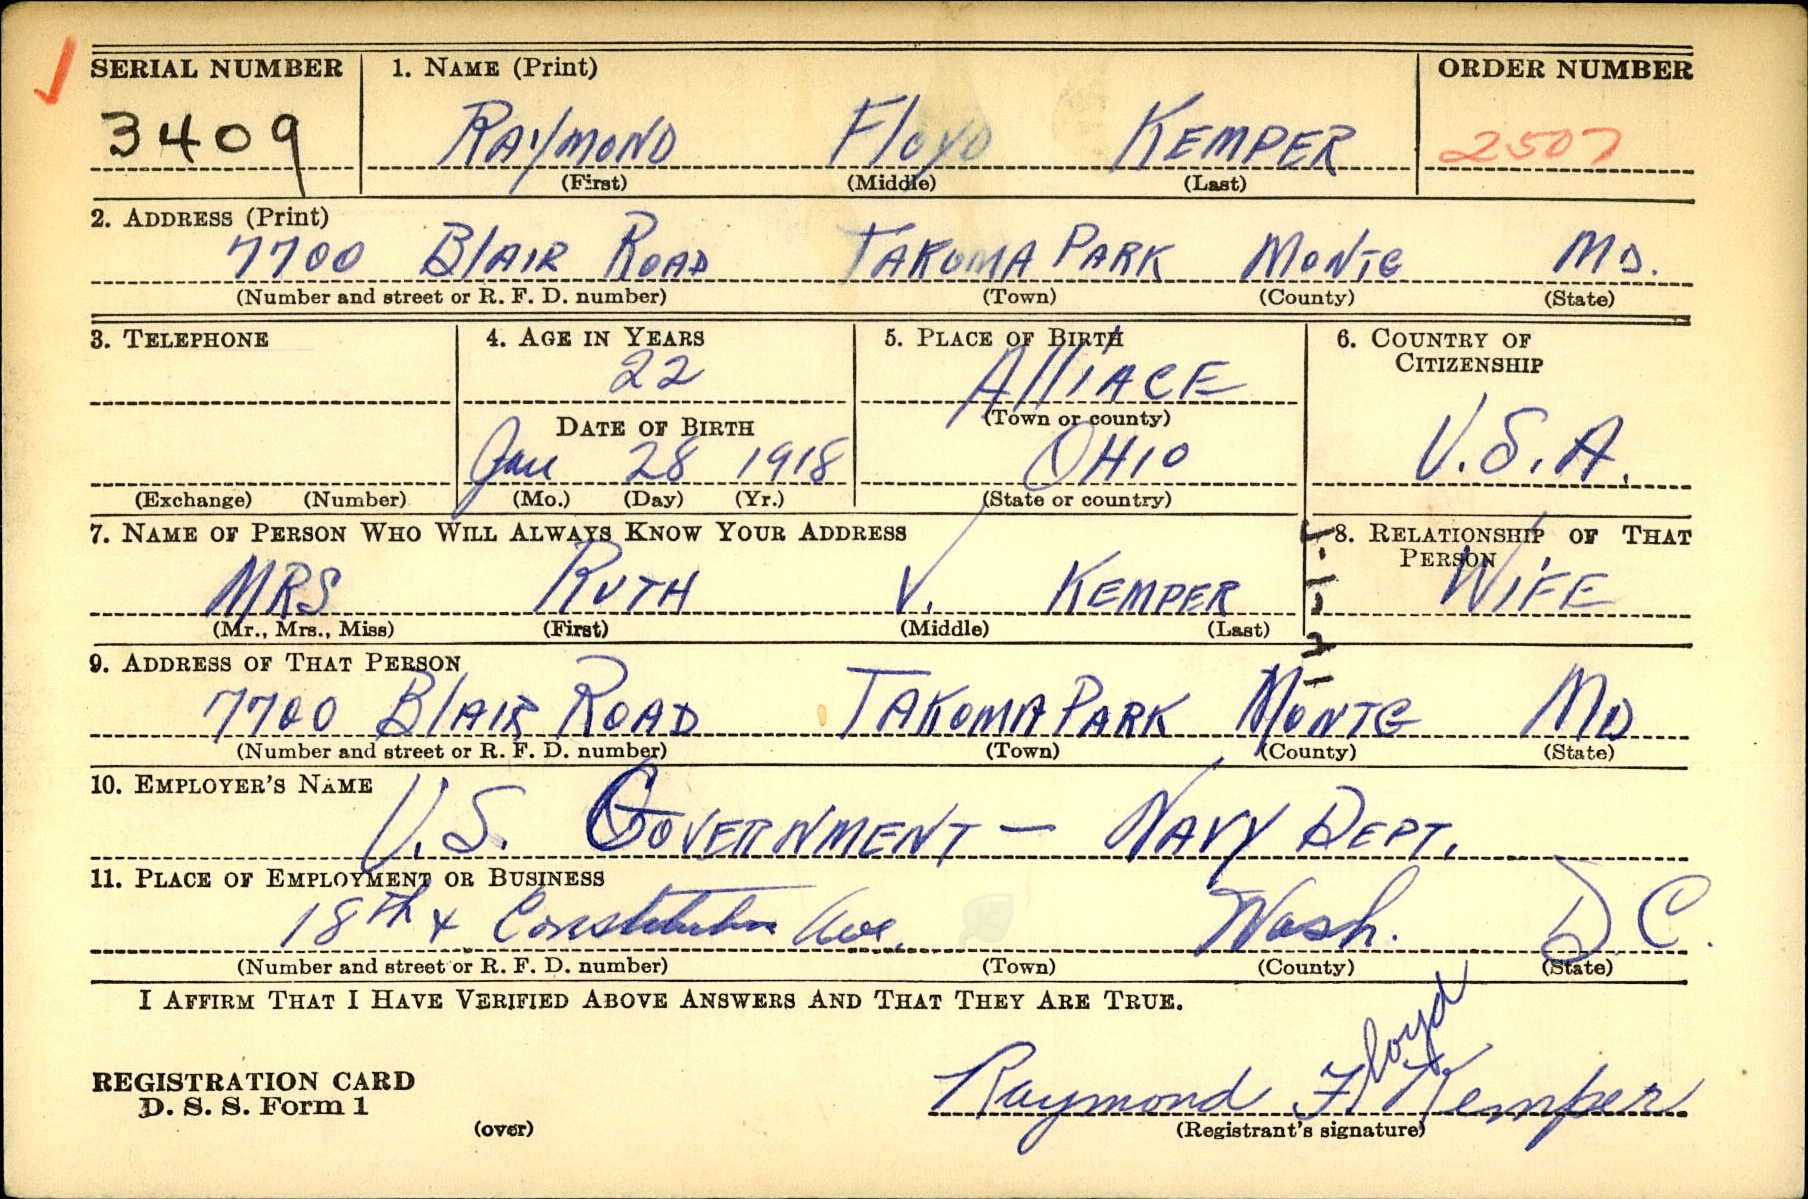 SERIAL NUMBER 1. NAME (Print) ORDER NUMBER
3409 RAYMOND Floyd KEMPER 2507
(First) (Middle) (Last)
2. ADDRESS (Print)
7700 BlAIR ROAD TAKOMA PARK MONTG MD.
(Number and street or R. F. D. number) (Town) (County) (State)
3. TELEPHONE 4. AGE IN YEARS 5. PLACE OF BIRTH 6. COUNTRY OF CITIZENSHIP
22 AlliACE
(Town or county)
DATE OF BIRTH
Jan 28 1918 OHIO U.S.A.
(Exchange) (Number) (Mo.) (Day) (Yr.) (State or country)
7. NAME OF PERSON WHO WILL ALWAYS KNOW YOUR ADDRESS 8. RELATIONSHIP OF THAT PERSON
MRS RUTH V. KEMPER WIFE
(Mr., Mrs., Miss) (First) (Middle) (Last)
9. ADDRESS OF THAT PERSON
7700 BlAIR ROAD TAKOMA PARK MONTG MD
(Number and street or R. F. D. number) (Town) (County) (State)
10. EMPLOYER'S NAME
U.S. GOVERNMENT — NAVY DEPT.
11. PLACE OF EMPLOYMENT OR BUSINESS
18th & Constitution Ave. Wash. D C.
(Number and street or R. F. D. number) (Town) (County) (State)
I AFFIRM THAT I HAVE VERIFIED ABOVE ANSWERS AND THAT THEY ARE TRUE.
REGISTRATION CARD
D. S. S. Form 1
Raymond Floyd Kemper
(over) (Registrant's signature)